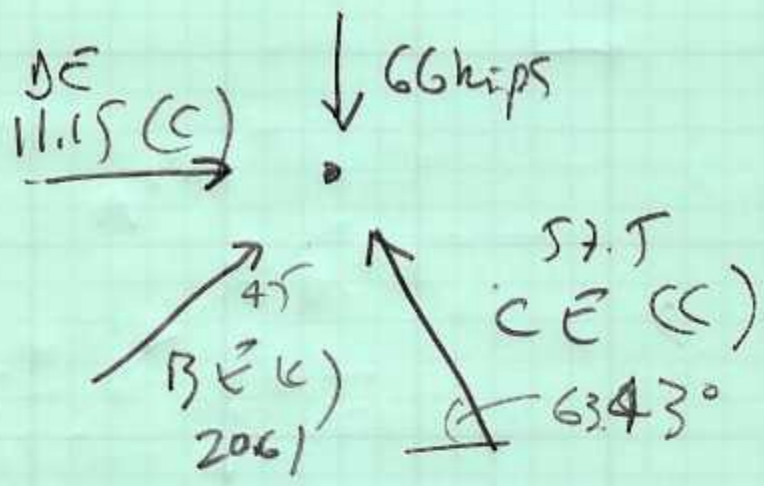 DE
11.15 (C)
66kips
45
BE (C)
20.61
57.5
CE (C)
63.43°